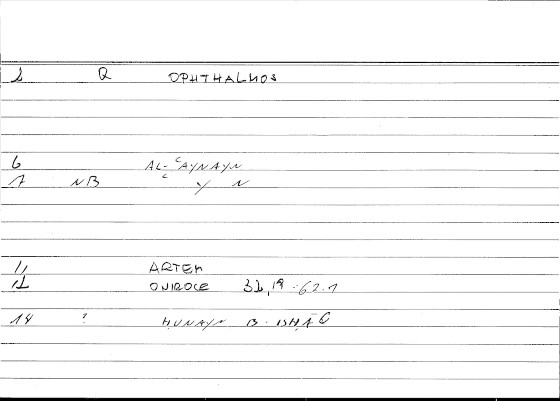 2 Q OPHTHALMOS
6 AL-ʿAYNAYN
7 NB ʿ Y N
11 ARTEM
12 OVIROCE 32,19-62.1
14 ? ḤUNAYN B. ISḤĀQ